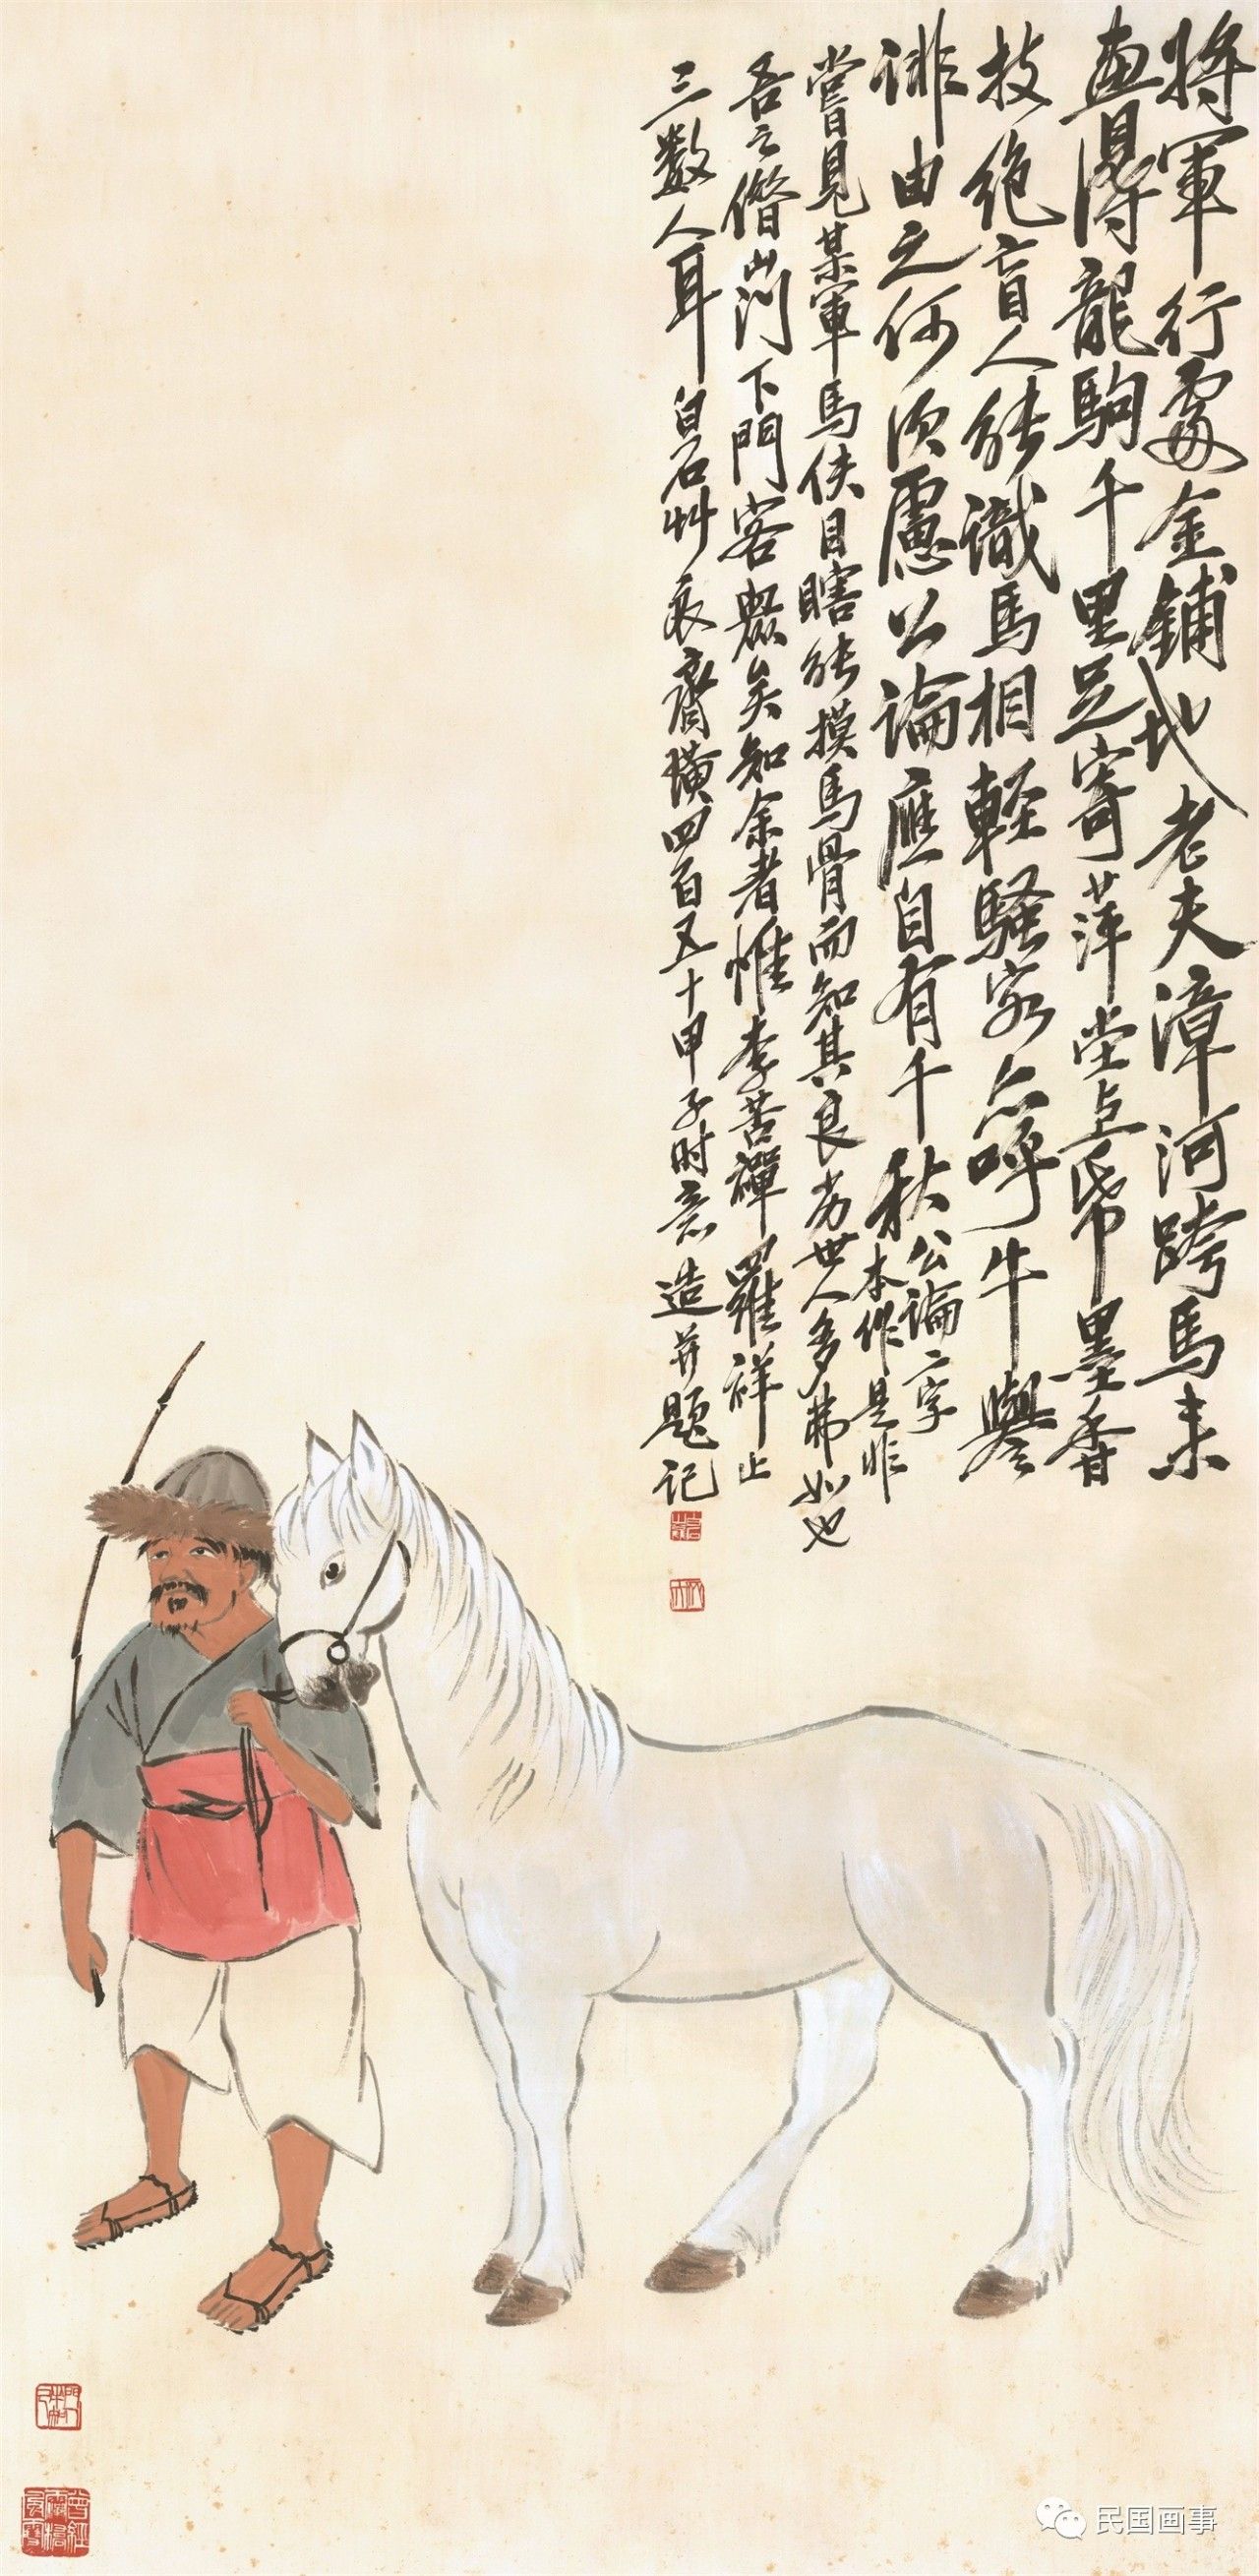 將軍行處金鋪地老夫漳河跨馬來
畫得龍駒千里足寄萍堂上帋墨香
技絕盲人能識馬相輕騷客亦呼牛譽
誹由之何須慮公論應自有千秋
公論二字
本作是非
嘗見某軍馬伕目瞎能摸馬骨而知其良劣世人多弗如也
吾之借山門下門客眾矣知余者惟李苦禪羅祥止
三數人耳白石草衣齋璜四百五十甲子時意造並題記
民国画事